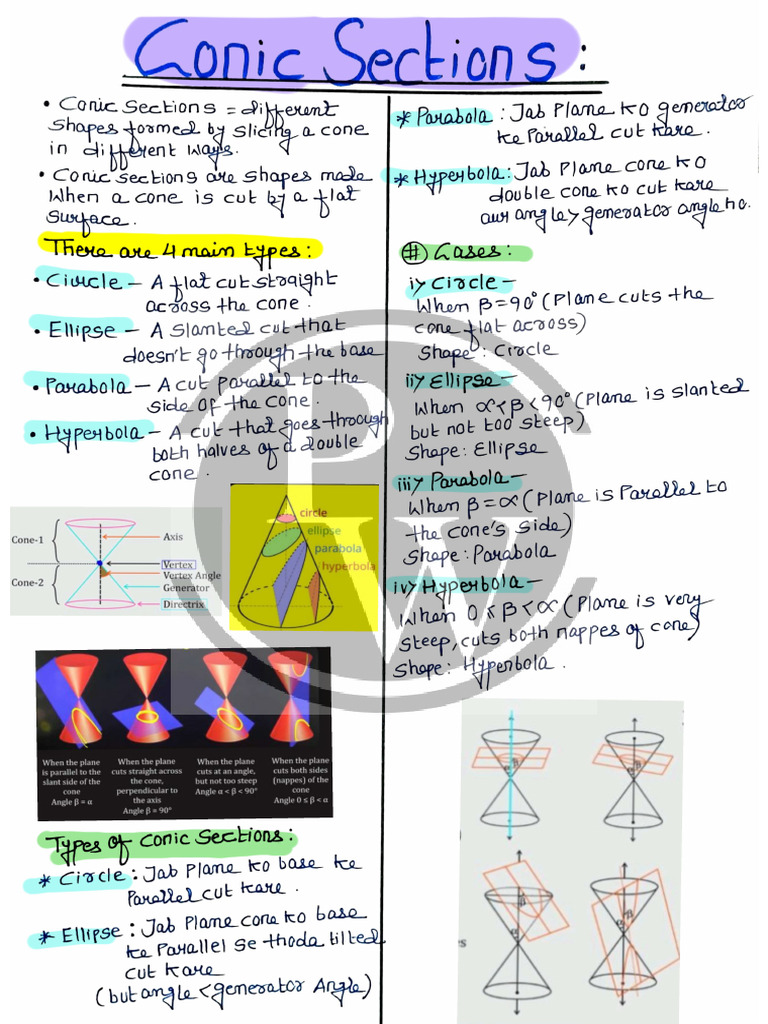 Conic Sections:
• Conic Sections = different
Shapes formed by slicing a cone
in different ways.
• Conic sections are shapes made
When a cone is cut by a flat
Surface.
There are 4 main types:
• Circle – A flat cut straight
across the cone.
• Ellipse – A slanted cut that
doesn't go through the base
• Parabola – A cut parallel to the
side of the cone.
• Hyperbola – A cut that goes through
both halves of a double
cone.
Cone-1
Cone-2
Axis
Vertex
Vertex Angle
Generator
Directrix
circle
ellipse
parabola
hyperbola
When the plane
is parallel to the
slant side of the
cone
Angle β = α
When the plane
cuts straight across
the cone,
perpendicular to
the axis
Angle β = 90°
When the plane
cuts at an angle,
but not too steep
Angle α < β < 90°
When the plane
cuts both sides
(nappes) of the
cone
Angle 0 ≤ β < α
Types of Conic Sections:
* Circle: Jab Plane ko base ke
Parallel cut kare.
* Ellipse: Jab Plane cone ko base
ke Parallel se thoda tilted
cut kare
(but angle < generator Angle)
* Parabola: Jab Plane ko generator
ke Parallel cut kare.
* Hyperbola: Jab Plane cone ko
double cone ko cut kare
aur angle > generator angle ho.
# Cases:
i) Circle –
When β = 90° (Plane cuts the
cone flat across)
Shape: Circle
ii) Ellipse –
When α < β < 90° (Plane is slanted
but not too steep)
Shape: Ellipse
iii) Parabola –
When β = α (Plane is Parallel to
the cone's side)
Shape: Parabola
iv) Hyperbola –
When 0 ≤ β < α (Plane is very
steep, cuts both nappes of cone)
Shape: Hyperbola.
PW